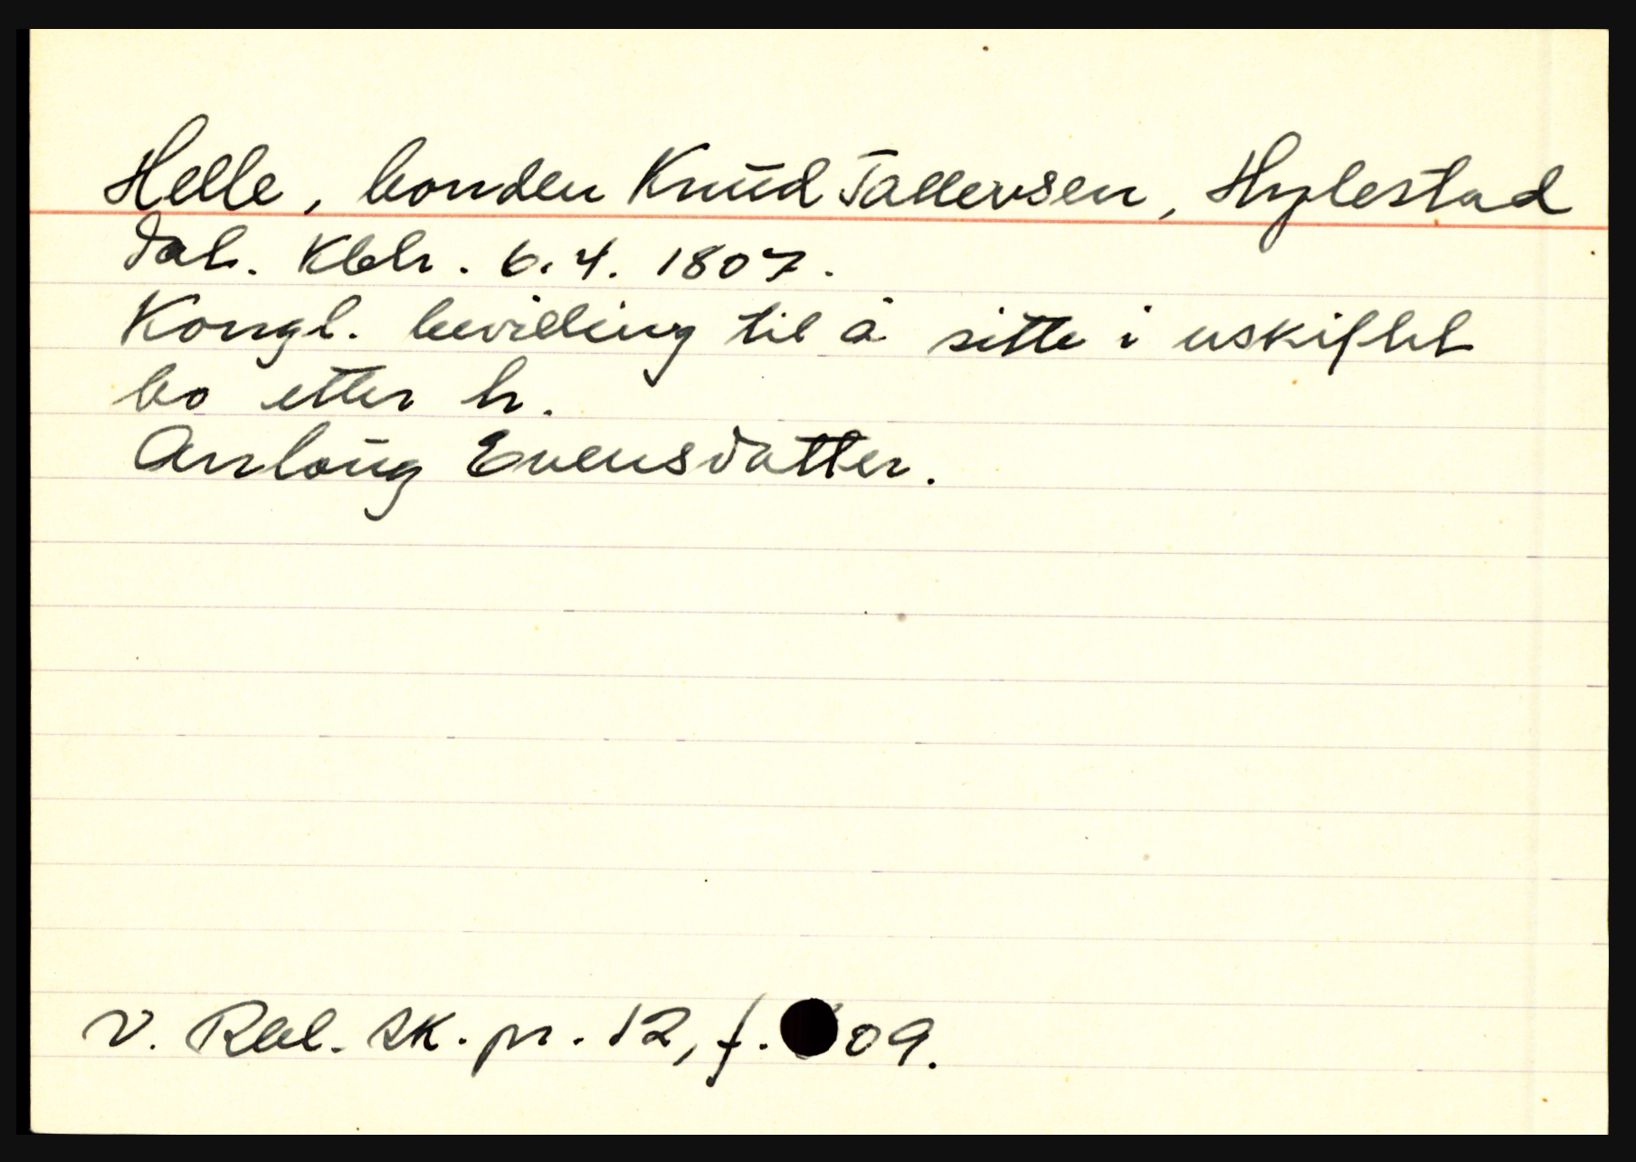 Helle, bonden Knud Tallevsen, Hylestad
dat. Kbh. 6.4. 1807.
Kongl. bevilling til å sitte i uskiftet
bo etter h.
Anloug Evensdatter.
V. Rbl. sk. pr. 12, f. 09.